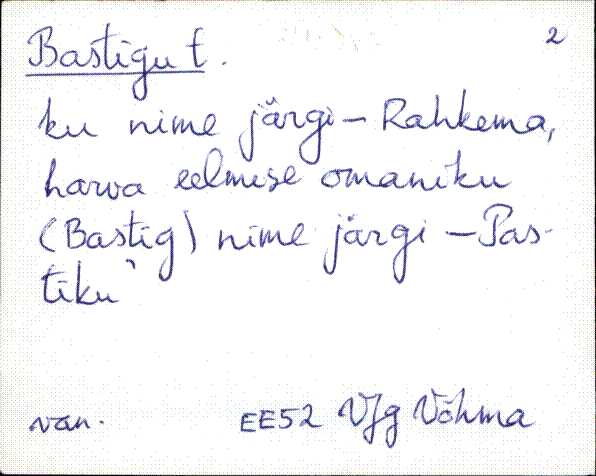 Bastigu t. 2
ku nime järgi – Rahkema,
harva eelmise omaniku
(Bastig) nime järgi – Pas-
tiku'
van. EE52 VJg Võhma